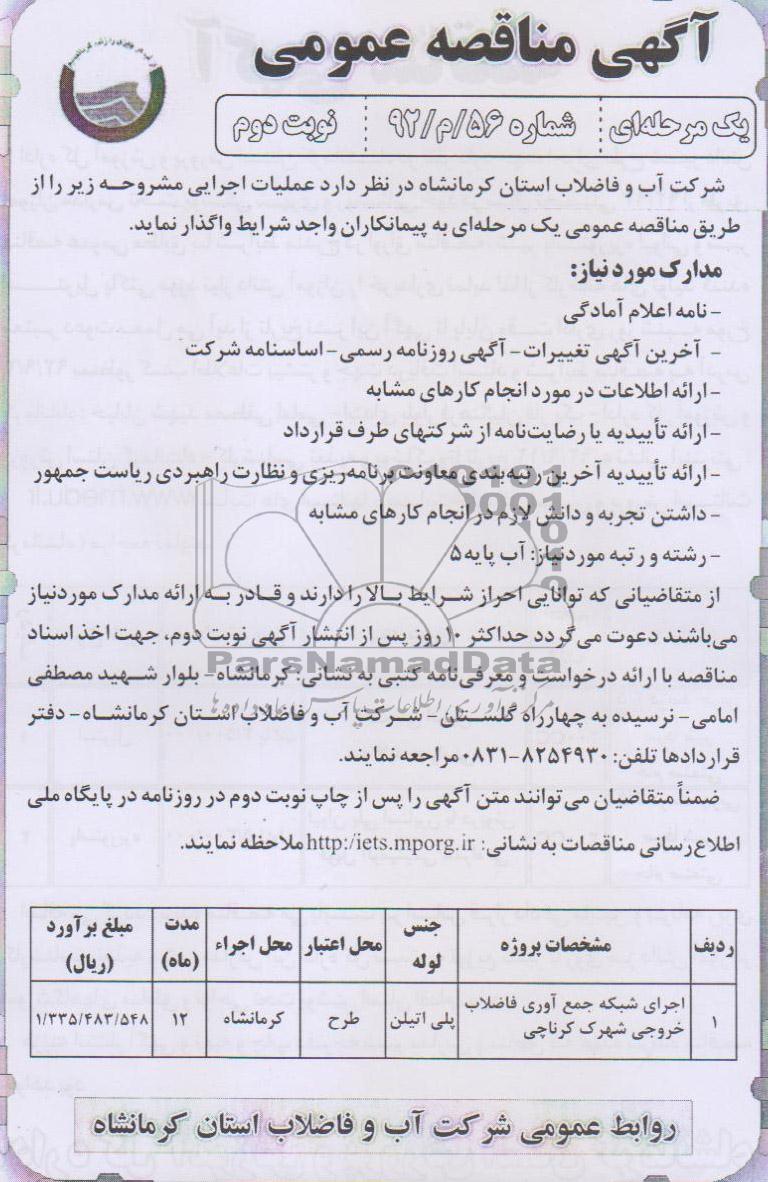 آگهی مناقصه عمومی
یک مرحله‌ای شماره ۵۶/م/۹۲ نوبت دوم
شرکت آب و فاضلاب استان کرمانشاه در نظر دارد عملیات اجرایی مشروحه زیر را از
طریق مناقصه عمومی یک مرحله‌ای به پیمانکاران واجد شرایط واگذار نماید.
مدارک مورد نیاز:
- نامه اعلام آمادگی
- آخرین آگهی تغییرات- آگهی روزنامه رسمی- اساسنامه شرکت
- ارائه اطلاعات در مورد انجام کارهای مشابه
- ارائه تأییدیه یا رضایت‌نامه از شرکتهای طرف قرارداد
- ارائه تأییدیه آخرین رتبه‌بندی معاونت برنامه‌ریزی و نظارت راهبردی ریاست جمهور
- داشتن تجربه و دانش لازم در انجام کارهای مشابه
- رشته و رتبه موردنیاز: آب پایه ۵
از متقاضیانی که توانایی احراز شرایط بالا را دارند و قادر به ارائه مدارک موردنیاز
می‌باشند دعوت می‌گردد حداکثر ۱۰ روز پس از انتشار آگهی نوبت دوم، جهت اخذ اسناد
مناقصه با ارائه درخواست و معرفی‌نامه کتبی به نشانی: کرمانشاه- بلوار شهید مصطفی
ParsNamadData
امامی- نرسیده به چهارراه گلستان- شرکت آب و فاضلاب استان کرمانشاه- دفتر
قراردادها تلفن: ۸۲۵۴۹۳۰-۰۸۳۱ مراجعه نمایند.
ضمناً متقاضیان می‌توانند متن آگهی را پس از چاپ نوبت دوم در روزنامه در پایگاه ملی
اطلاع‌رسانی مناقصات به نشانی: http:/iets.mporg.ir ملاحظه نمایند.
ردیف مشخصات پروژه جنس لوله محل اعتبار محل اجراء مدت (ماه) مبلغ برآورد (ریال)
۱ اجرای شبکه جمع آوری فاضلاب خروجی شهرک کرناچی پلی اتیلن طرح کرمانشاه ۱۲ ۱/۳۳۵/۴۸۳/۵۴۸
روابط عمومی شرکت آب و فاضلاب استان کرمانشاه